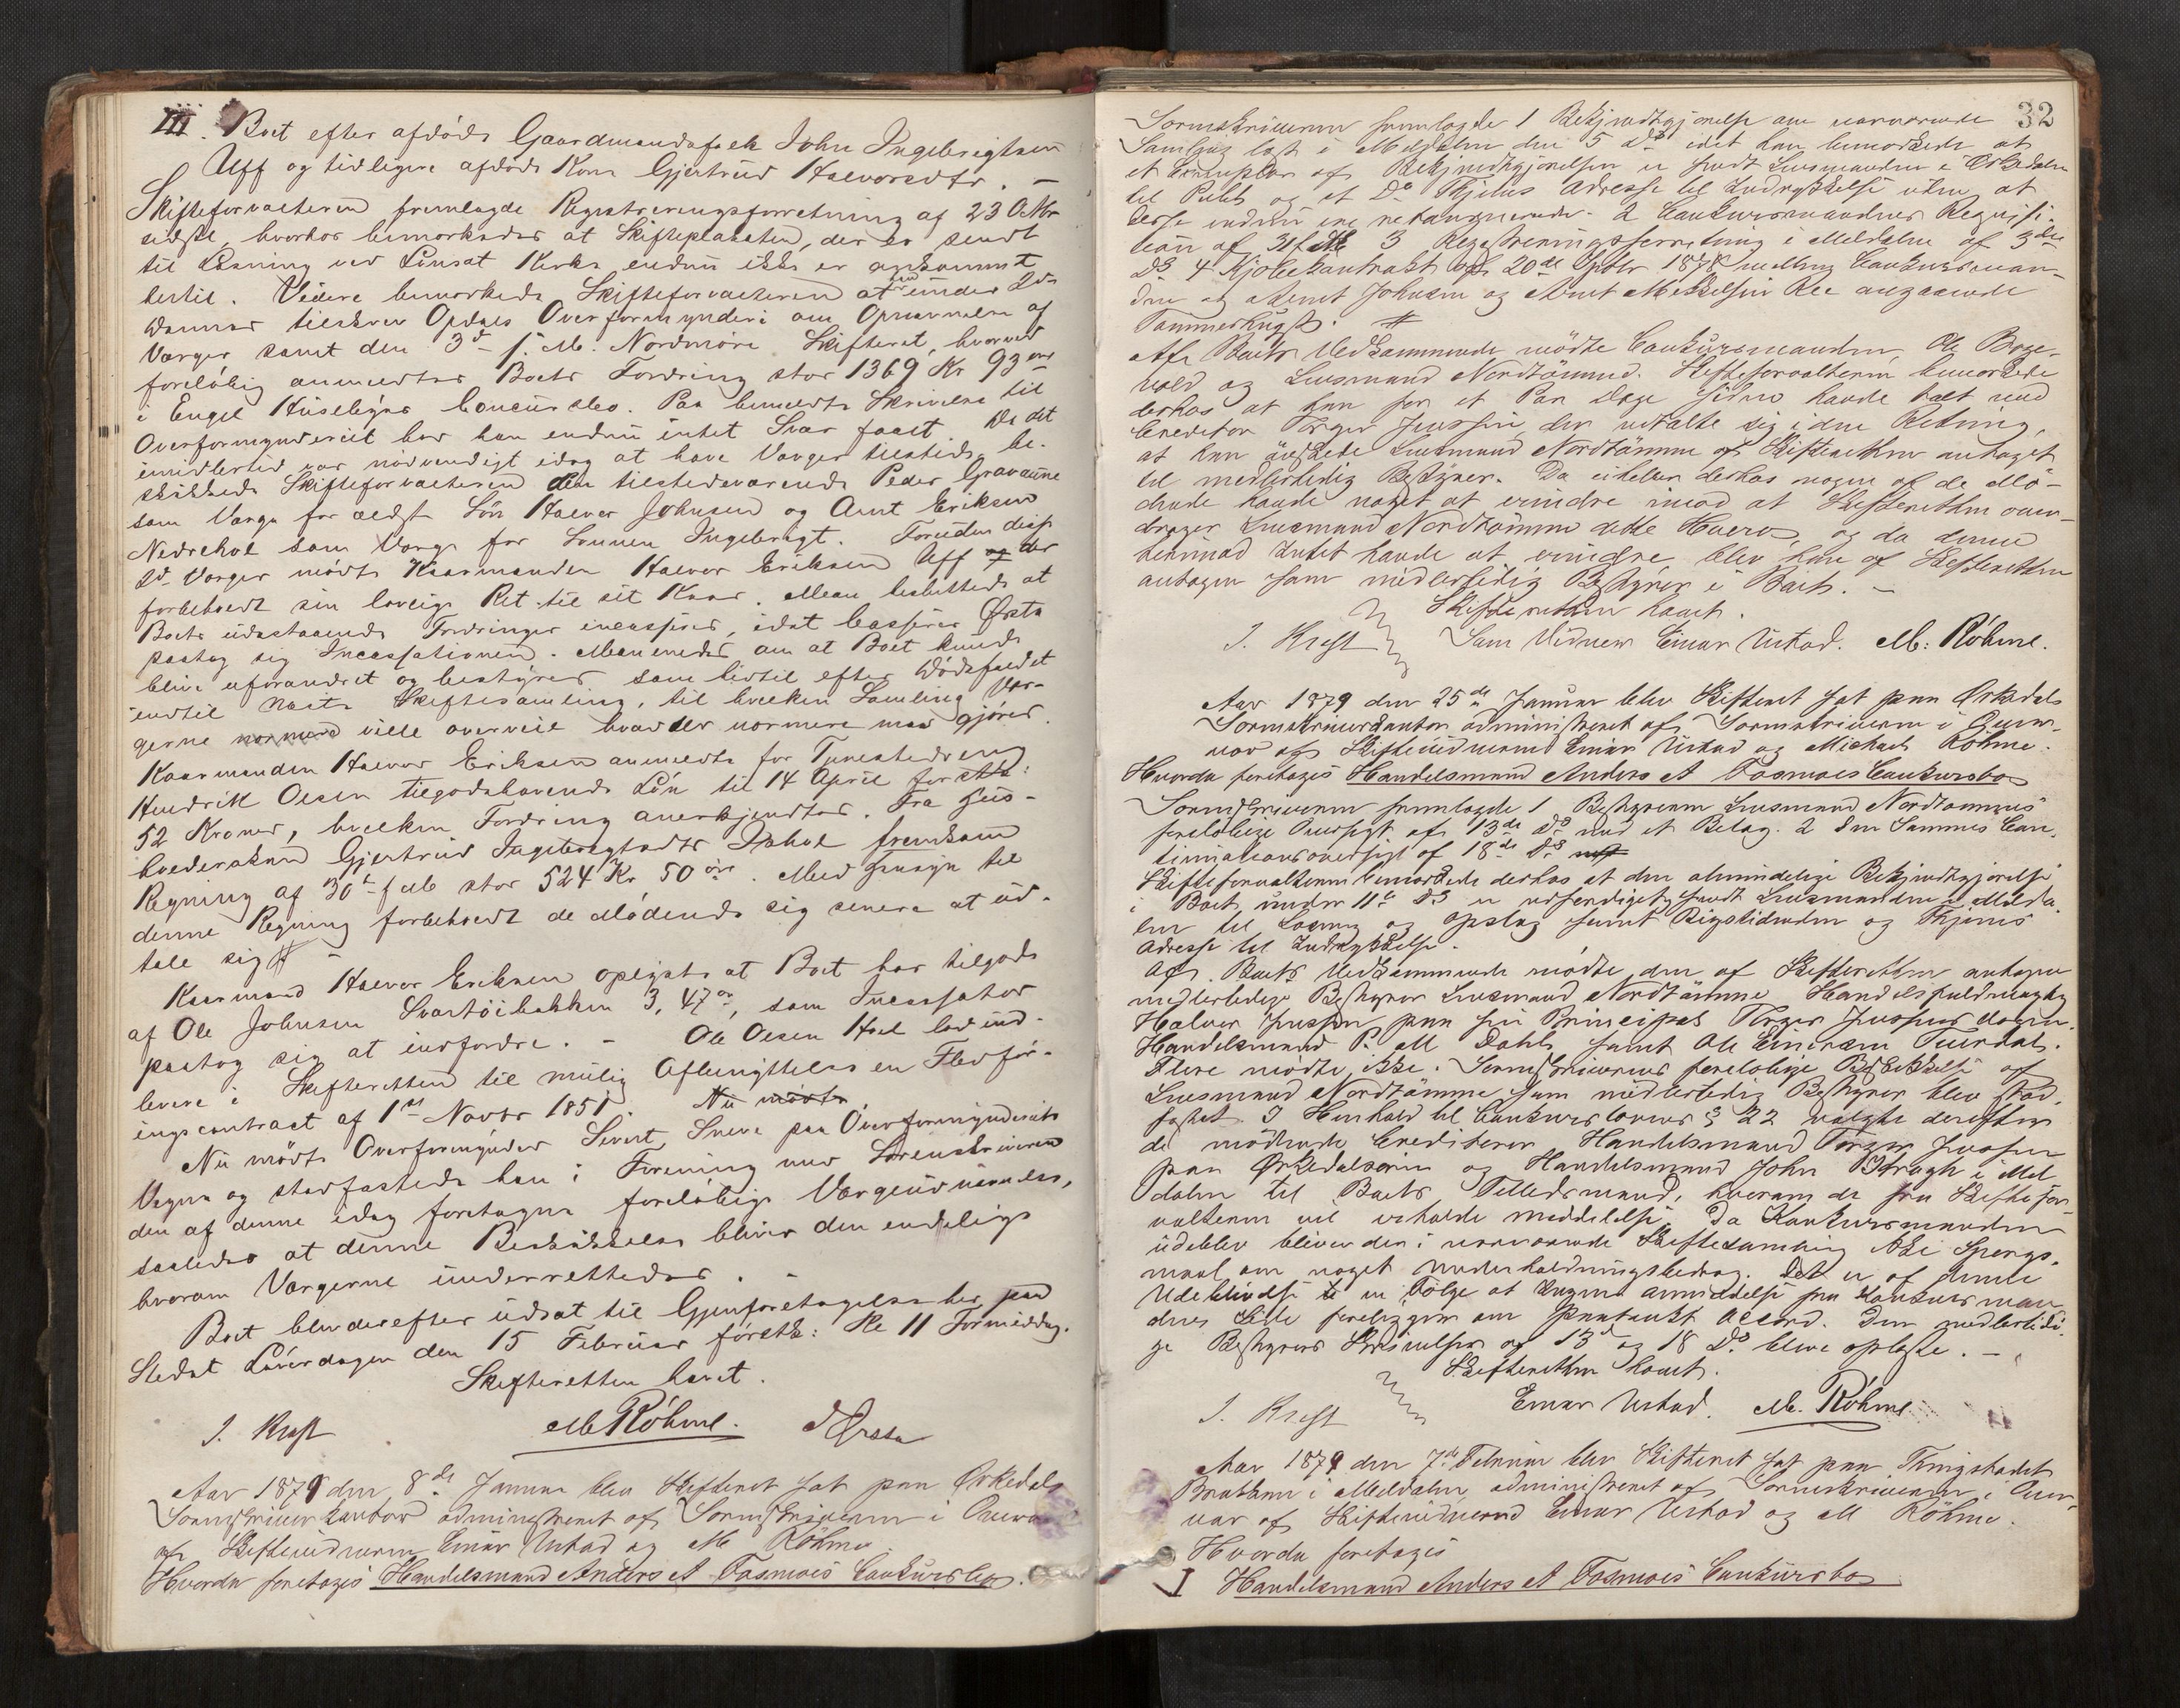 III. Boet efter afdøde Gaardmandsfolk John Ingebrigtsen
Uff og tidligere afdøde Kone Gjertrud Halvorsdtr. –
Skifteforvalteren fremlagde Registreringsforretning af 23 Octbr
sidste, hvorhos bemærkedes at Skifteplakaten, der er sendt
til Læsning ved Lønset Kirke endnu ikke er ankommet
hertil. Videre bemærkede Skifteforvalteren at under
tilskrev Opdals Overformynderi om Opnævnelse af
Værger samt den 3d f. M. Nordmøre Skifteret, hvorved
foreløbig anmeldtes Boets Fordring stor 1369 Kr 93 øre
i Engel Huselbyes Concursbo. Paa bemeldte Skrivelse til
Overformynderiet har han endnu intet Svar faaet. Da det
imidlertid var nødvendigt idag at have Værger tilstede, be-
skikkede Skifteforvalteren den tilstedeværende Peder Gravaune
som Værge for ældste Søn Halvor Johnsen og Arnt Eriksen
Nedrehol som Værge for Sønnen Ingebrigt. Foruden disse
2de Værger mødte Kaarmanden Halvor Eriksen Uff og der
forbeholdt sin lovlige Ret til sit Kaar. Man besluttede at
Boets udestaaende Fordringer incasseres, idet Casserer Ørsta
paatog sig Incassationen. Man enedes om at Boet kunde
blive uforandret og bestyres som hidtil efter Dødsfaldet
indtil næste Skiftesamling, til hvilken Samling Vær-
gerne nærmere ville overveie hvad der nærmere maa gjøres.
Kaarmanden Halvor Eriksen anmeldte for Tjenestedreng
Hendrik Olsen tilgodehavende Løn til 14 April førstk:
52 Kroner, hvilken Fordring anerkjendtes. Fra Jus-
Gjertrud Ingebrigtsdtr fremkom
Regning af 30te f Mb stor 524 Kr 50 øre. Med Hensyn til
denne Regning forbeholdt de Mødende sig senere at ud-
tale sig # –
Kaarmand Halvor Eriksen oplyste at Boet har tilgode
af Ole Johnsen Svartøibakken 3,47 ør, som Incassator
paatog sig at indfordre. – Ole Olsen Hoel lod ind-
levere i Skifteretten til mulig Aflysning en Fledfør-
ingscontract af 1ste Novbr 1851. Nu mødte
Nu mødte Overformynder Sivert Sneve paa Overformynderiets
Vegne og stadfæstede han i Forening med Sorenskriveren
den af denne idag foretagne foreløbige Værgeudnævnelse,
saaledes at denne Beskikkelse bliver den endelige
hvorom Værgerne underrettedes. –
Boet blev derefter udsat til Gjenforetagelse her paa
Stedet Løverdagen den 15 Februar førstk: Kl 11 Formiddag.
Skifteretten hævet.
J. Kraft M Röhme. J Ørsta
Aar 1879 den 8de Januar blev Skifteret sat paa Ørkedals
Sorenskriverkontor administreret af Sorenskriveren i Overvær
af Skiftevidnerne Einar Ustad og M Röhme.
Hvorda foretoges Handelsmand Anders A Fosmoes Concursbo.
32
Sorenskriveren fremlagde 1 Bekjendtgjørelse om nærværende
Samling læst i Meldalen den 5 Ds idet han bemærkede at
et Exemplar af Bekjendtgjørelsen er sendt Lensmanden i Ørkedalen
til Publ. og et Do Thjems Adresse til Indrykkelse uden at
disse endnu ere retournerede. 2 Concursmandens Requisi-
tion af 3 Registreringsforretning i Meldalen af 3die
Ds 4 Kjøbekontrakt af 20de Septbr 1878 mellem Concursman-
den og Arnt Johnsen og Arnt Mikkelsen Ree angaaende
Tømmerhugst. #
Af Boets Vedkommende mødte Concursmanden, Ole Boge-
vold og Lensmand Nordtømme. Skifteforvalteren bemærkede
derhos at han for et Par Dage siden havde talt med
Creditor Torger Jenssen, der udtalte sig i den Retning,
at han ønskede Lensmand Nordtømme af Skifteretten antaget
til midlertidig Bestyrer. Da ei heller derhos nogen af de Mø-
dende havde noget at erindre imod at Skifteretten over-
drager Lensmand Nordtømme dette Hverv, og da denne
herimod Intet havde at erindre, blev han af Skifteretten
antagen som midlertidig Bestyrer i Boet. –
Skifteretten hævet.
J. Kraft Som Vidner Einar Ustad. M: Röhme.
Aar 1879 den 25de Januar blev Skifteret sat paa Ørkedals
Sorenskriverkontor administreret af Sorenskriveren i Over-
vær af Skiftevidnerne Einar Ustad og Michael Röhme.
Hvorda foretoges Handelsmand Anders A Fosmoes Concursbo
Sorenskriveren fremlagde 1 Bestyreren Lensmand Nordtømmes
foreløbige Oversigt af 13de Ds med et Bilag. 2 Den Sammes Con-
af 18de Ds
Skifteforvalteren bemærkede derhos at den almindelige Bekjendtgjørelse
i Boet under 11te Ds er udfærdiget og sendt Lensmanden i Melda-
len til Læsning og Opslag samt Rigstidenden og Thjems
Adresse til Indrykkelse.
Af Boets Vedkommende mødte den af Skifteretten antagne
midlertidige Bestyrer Lensmand Nordtømme, Handelsfuldmægtig
Halvor Jenssen paa sin Principal Torger Jenssens Vegne,
Handelsmand P. M Dahls samt Ole Einersen
Flere mødte ikke. Sorenskriverens foreløbige Beskikkelse af
Lensmand Nordtømme som midlertidig Bestyrer blev stad-
fæstet. I Henhold til Concurslovens § 22 valgte derefter
de mødende Creditorer Handelsmand Torger Jenssen
paa Ørkedalsøren og Handelsmand John Kragh i Mel-
dalen til Boets Tillidsmænd, hvorom de fra Skiftefor-
valteren vil erholde Meddelelse. Da Concursmanden
udeblev bliver der i nærværende Skiftesamling ikke Spørgs-
maal om noget Underholdningsbidrag. Det er af denne
Udeblivelse en Følge at Ingen Anmeldelse fra Concursman-
dens Side foreligger om paatænkt Accord. Den midlertidi-
ge Bestyrers Skrivelser af 13de og 18 Ds bleve oplæste. –
Skifteretten hævet.
J. Kraft Einar Ustad. M. Röhme
Aar 1879 den 7de Februar blev Skifteret sat paa Thingstedet
i Meldalen administreret af Sorenskriveren i Over-
vær af Skiftevidnerne Einar Ustad og M Röhme.
Hvorda foretoges
I Handelsmand Anders A Fosmoes Concursbo